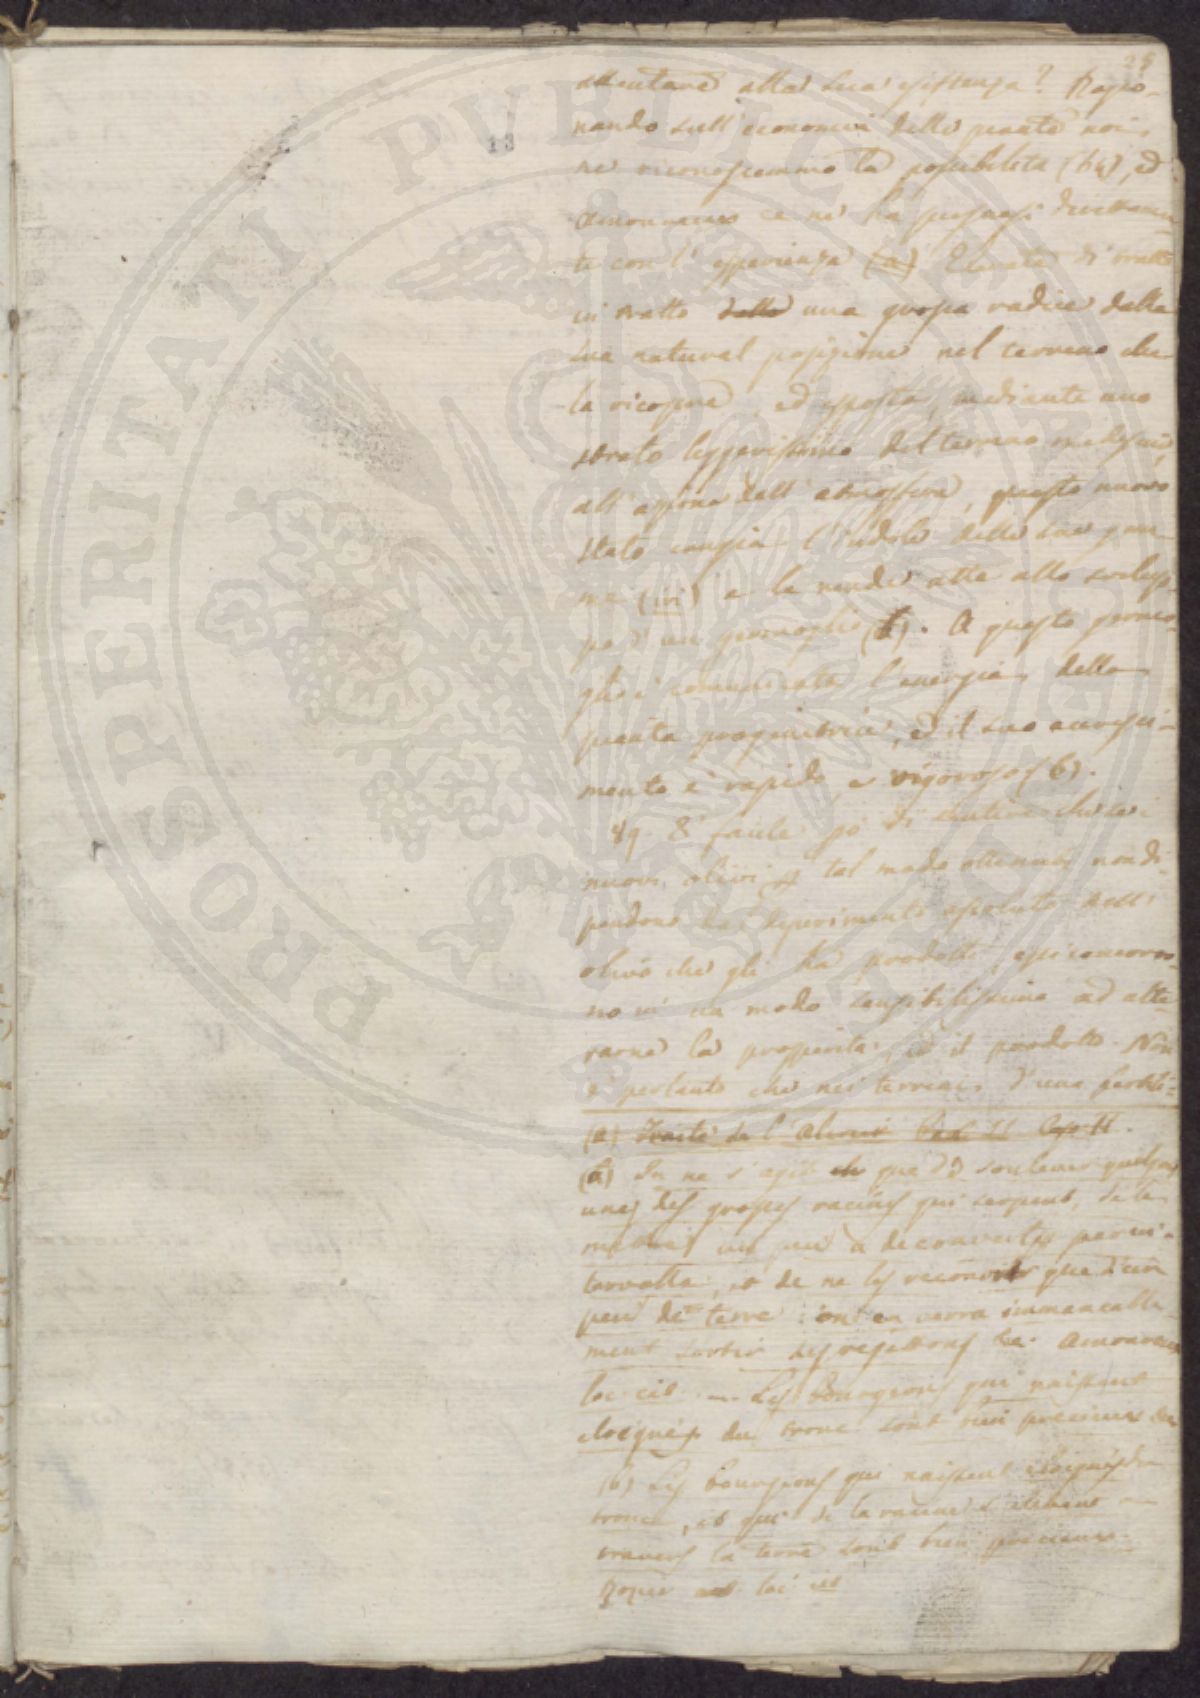 29
attentare alla sua esistenza? Ragio-
nando sull'economia delle piante noi
ne riconoscemmo la possibilità (64), ed
Amoureux ce ne ha persuasi direttamen
te con l'esperienza (a) Elevata di tratto
in tratto una grossa radice dalla
sua natural posizione nel terreno che
la ricopre, ed esposta, mediante uno
strato leggerissimo del terreno medesimo,
all'azione dell'atmosfera, questo nuovo
stato cangia l'indole delle sue gem
me (ivi) e le rende atte allo svilup
po d'un germoglio (a). A questo germo-
glio è comunicata l'energia della
pianta progenitrice, ed il suo accresci-
mento è rapido, e vigoroso (b).
89. E' facile di sentire che se i
nuovi olivi in tal modo ottenuti non di-
pendono dal deperimento assoluto dell'
olivo che gli ha prodotti, essi concorro-
no in un modo sensibilissimo ad alte-
rarne la prosperità, ed il prodotto. Non
è pertanto che nei terreni d'una fertili-
(a) Traité de l'Olivier Par. II Cap II.
(a) Il ne s'agit que de soulever quelques
unes des grosses racines qui serpent, de le
mettre un peu à decouvertes par in-
tervalle, et de ne les recouvrir que d'un
peu de terre: on en verra immancable
ment sortir des rejettons Amoureux
loc. cit. Les bourgeons qui naissent
eloignés du tronc sont bien precieux
(b) Les bourgeons qui naissent eloignés du
tronc, et qui de la racine s'elevent
travers la terre sont bien precieux.
Rozier loc. cit
PROSPERITATI PUBLICAE